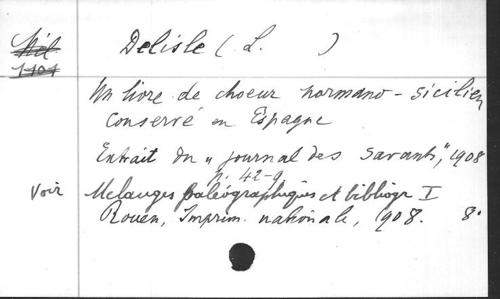 Mél. Delisle (L. )
1401
Un livre de choeur normano-sicilien
conservé en Espagne
Extrait du "journal des savants", 1908
N. 42-9
Voir Mélanges paléographiques et bibliogr I
Rouen, Imprim. nationale, 1908. 8°